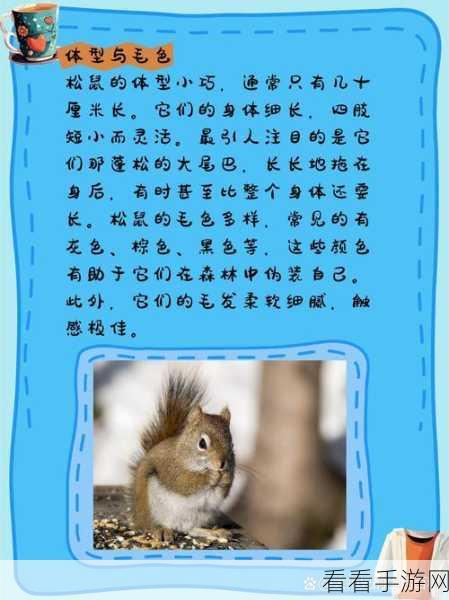 体型与毛色
松鼠的体型小巧，通常只有几十
厘米长。它们的身体细长，四肢
短小而灵活。最引人注目的是它
们那蓬松的大尾巴，长长地拖在
身后，有时甚至比整个身体还要
长。松鼠的毛色多样，常见的有
灰色、棕色、黑色等，这些颜色
有助于它们在森林中伪装自己。
此外，它们的毛发柔软细腻，触
感极佳。
看看手游网